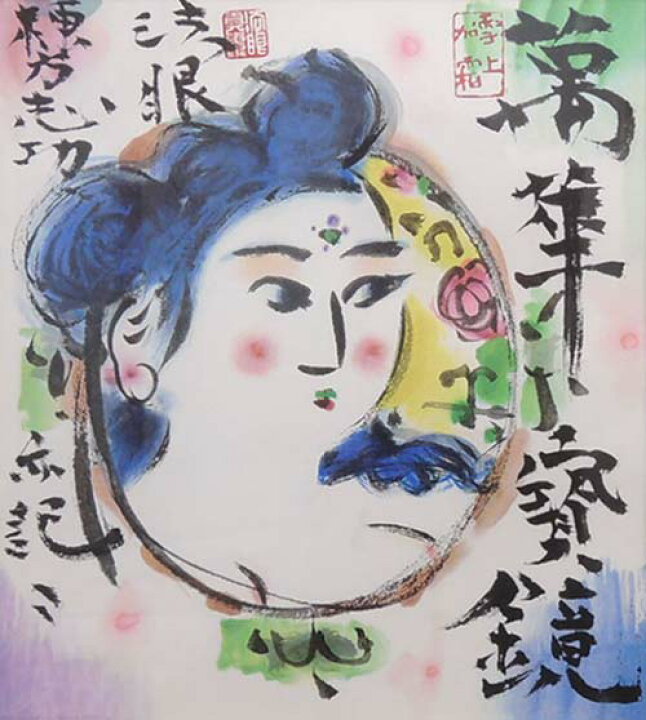 萬華寶鏡
法眼
棟方志功
亦記